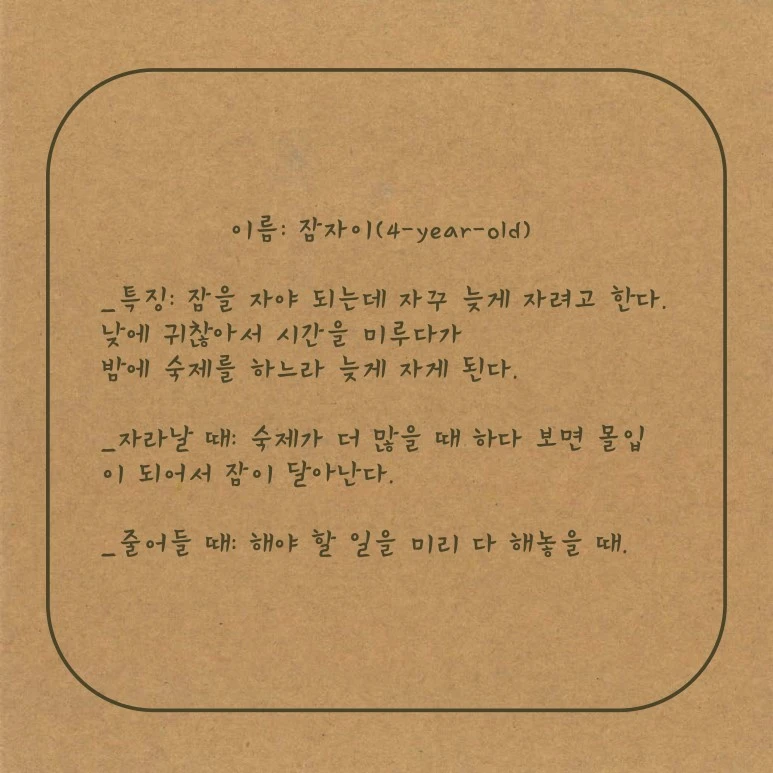 이름: 잠자이(4-year-old)
_특징: 잠을 자야 되는데 자꾸 늦게 자려고 한다.
낮에 귀찮아서 시간을 미루다가
밤에 숙제를 하느라 늦게 자게 된다.
_자라날 때: 숙제가 더 많을 때 하다 보면 몰입
이 되어서 잠이 달아난다.
_줄어들 때: 해야 할 일을 미리 다 해놓을 때.